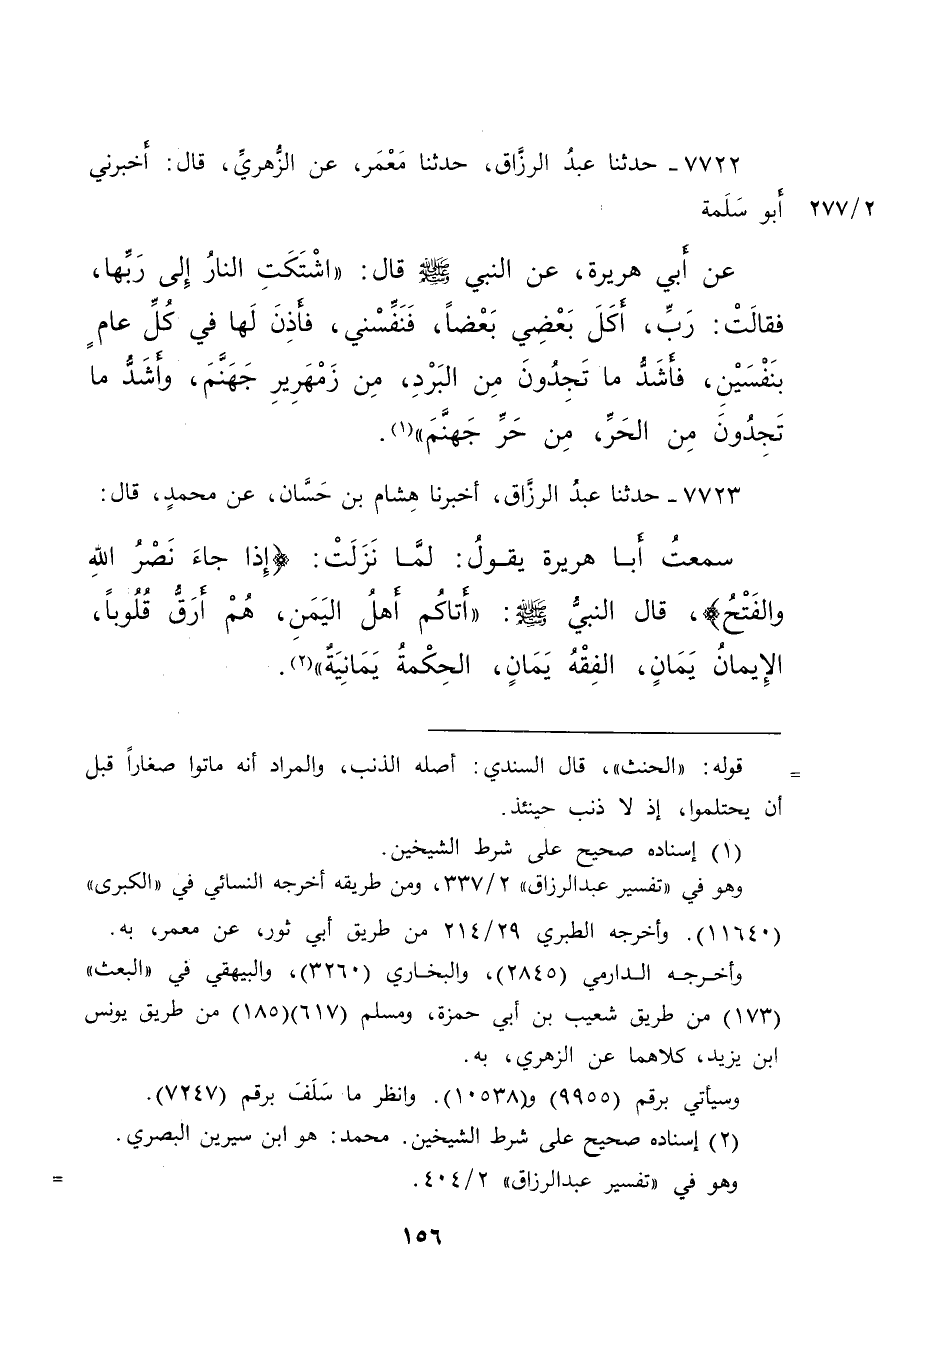 ٧٧٢٢ـ حدثنا عبدُ الرزَّاق، حدثنا مَعْمَر، عن الزُّهريِّ، قال: أخبرني
أبو سَلَمة ٢٧٧/٢
عن أبي هريرة، عن النبي ﷺ قال: «اشْتَكَتِ النارُ إلى رَبِّها،
فقالَتْ: رَبِّ، أَكَلَ بَعْضِي بَعْضاً، فَنَفِّسْني، فأَذِنَ لَها في كُلِّ عامٍ
بنَفْسَيْنِ، فأَشَدُّ ما تَجِدُونَ مِن البَرْدِ، مِن زَمْهَرِيرِ جَهَنَّمَ، وأَشَدُّ ما
تَجِدُونَ مِن الحَرِّ، مِن حَرِّ جَهنَّمَ»(١).
٧٧٢٣ـ حدثنا عبدُ الرزَّاق، أخبرنا هِشام بن حَسَّان، عن محمدٍ، قال:
سمعتُ أبـا هريرة يقـولُ: لمَّـا نَزَلَتْ: ﴿إذا جاءَ نَصْرُ اللهِ
والفَتْحُ﴾، قال النبيُّ ﷺ: «أَتاكُم أَهلُ اليَمَنِ، هُمْ أَرَقُّ قُلُوباً،
الإيمانُ يَمَانٍ، الفِقْهُ يَمَانٍ، الحِكْمةُ يَمَانِيَةٌ»(٢).
= قوله: «الحنث»، قال السندي: أصله الذنب، والمراد أنه ماتوا صغاراً قبل
أن يحتلموا، إذ لا ذنب حينئذ.
(١) إسناده صحيح على شرط الشيخين.
وهو في «تفسير عبدالرزاق» ٣٣٧/٢، ومن طريقه أخرجه النسائي في «الكبرى»
(١١٦٤٠). وأخرجه الطبري ٢١٤/٢٩ من طريق أبي ثور، عن معمر، به.
وأخـرجـه الـدارمي (٢٨٤٥)، والبخـاري (٣٢٦٠)، والبيهقي في «البعث»
(١٧٣) من طريق شعيب بن أبي حمزة، ومسلم (٦١٧)(١٨٥) من طريق يونس
ابن يزيد، كلاهما عن الزهري، به.
وسيأتي برقم (٩٩٥٥) و(١٠٥٣٨). وانظر ما سَلَفَ برقم (٧٢٤٧).
(٢) إسناده صحيح على شرط الشيخين. محمد: هو ابن سيرين البصري.
وهو في «تفسير عبدالرزاق» ٤٠٤/٢. =
١٥٦